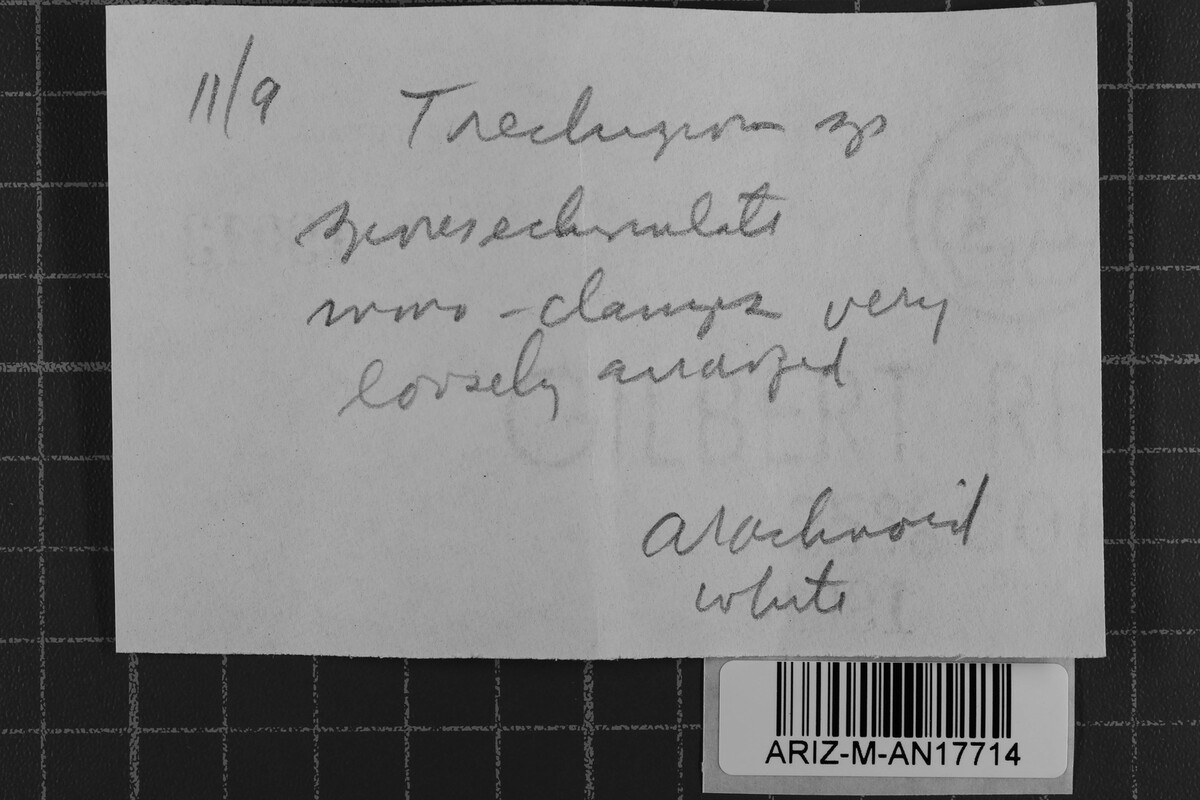 11/9
Trechispora sp
spores echinulate
mono-clamps very
loosely arranged
arachnoid
white
GILBERT
ARIZ-M-AN17714